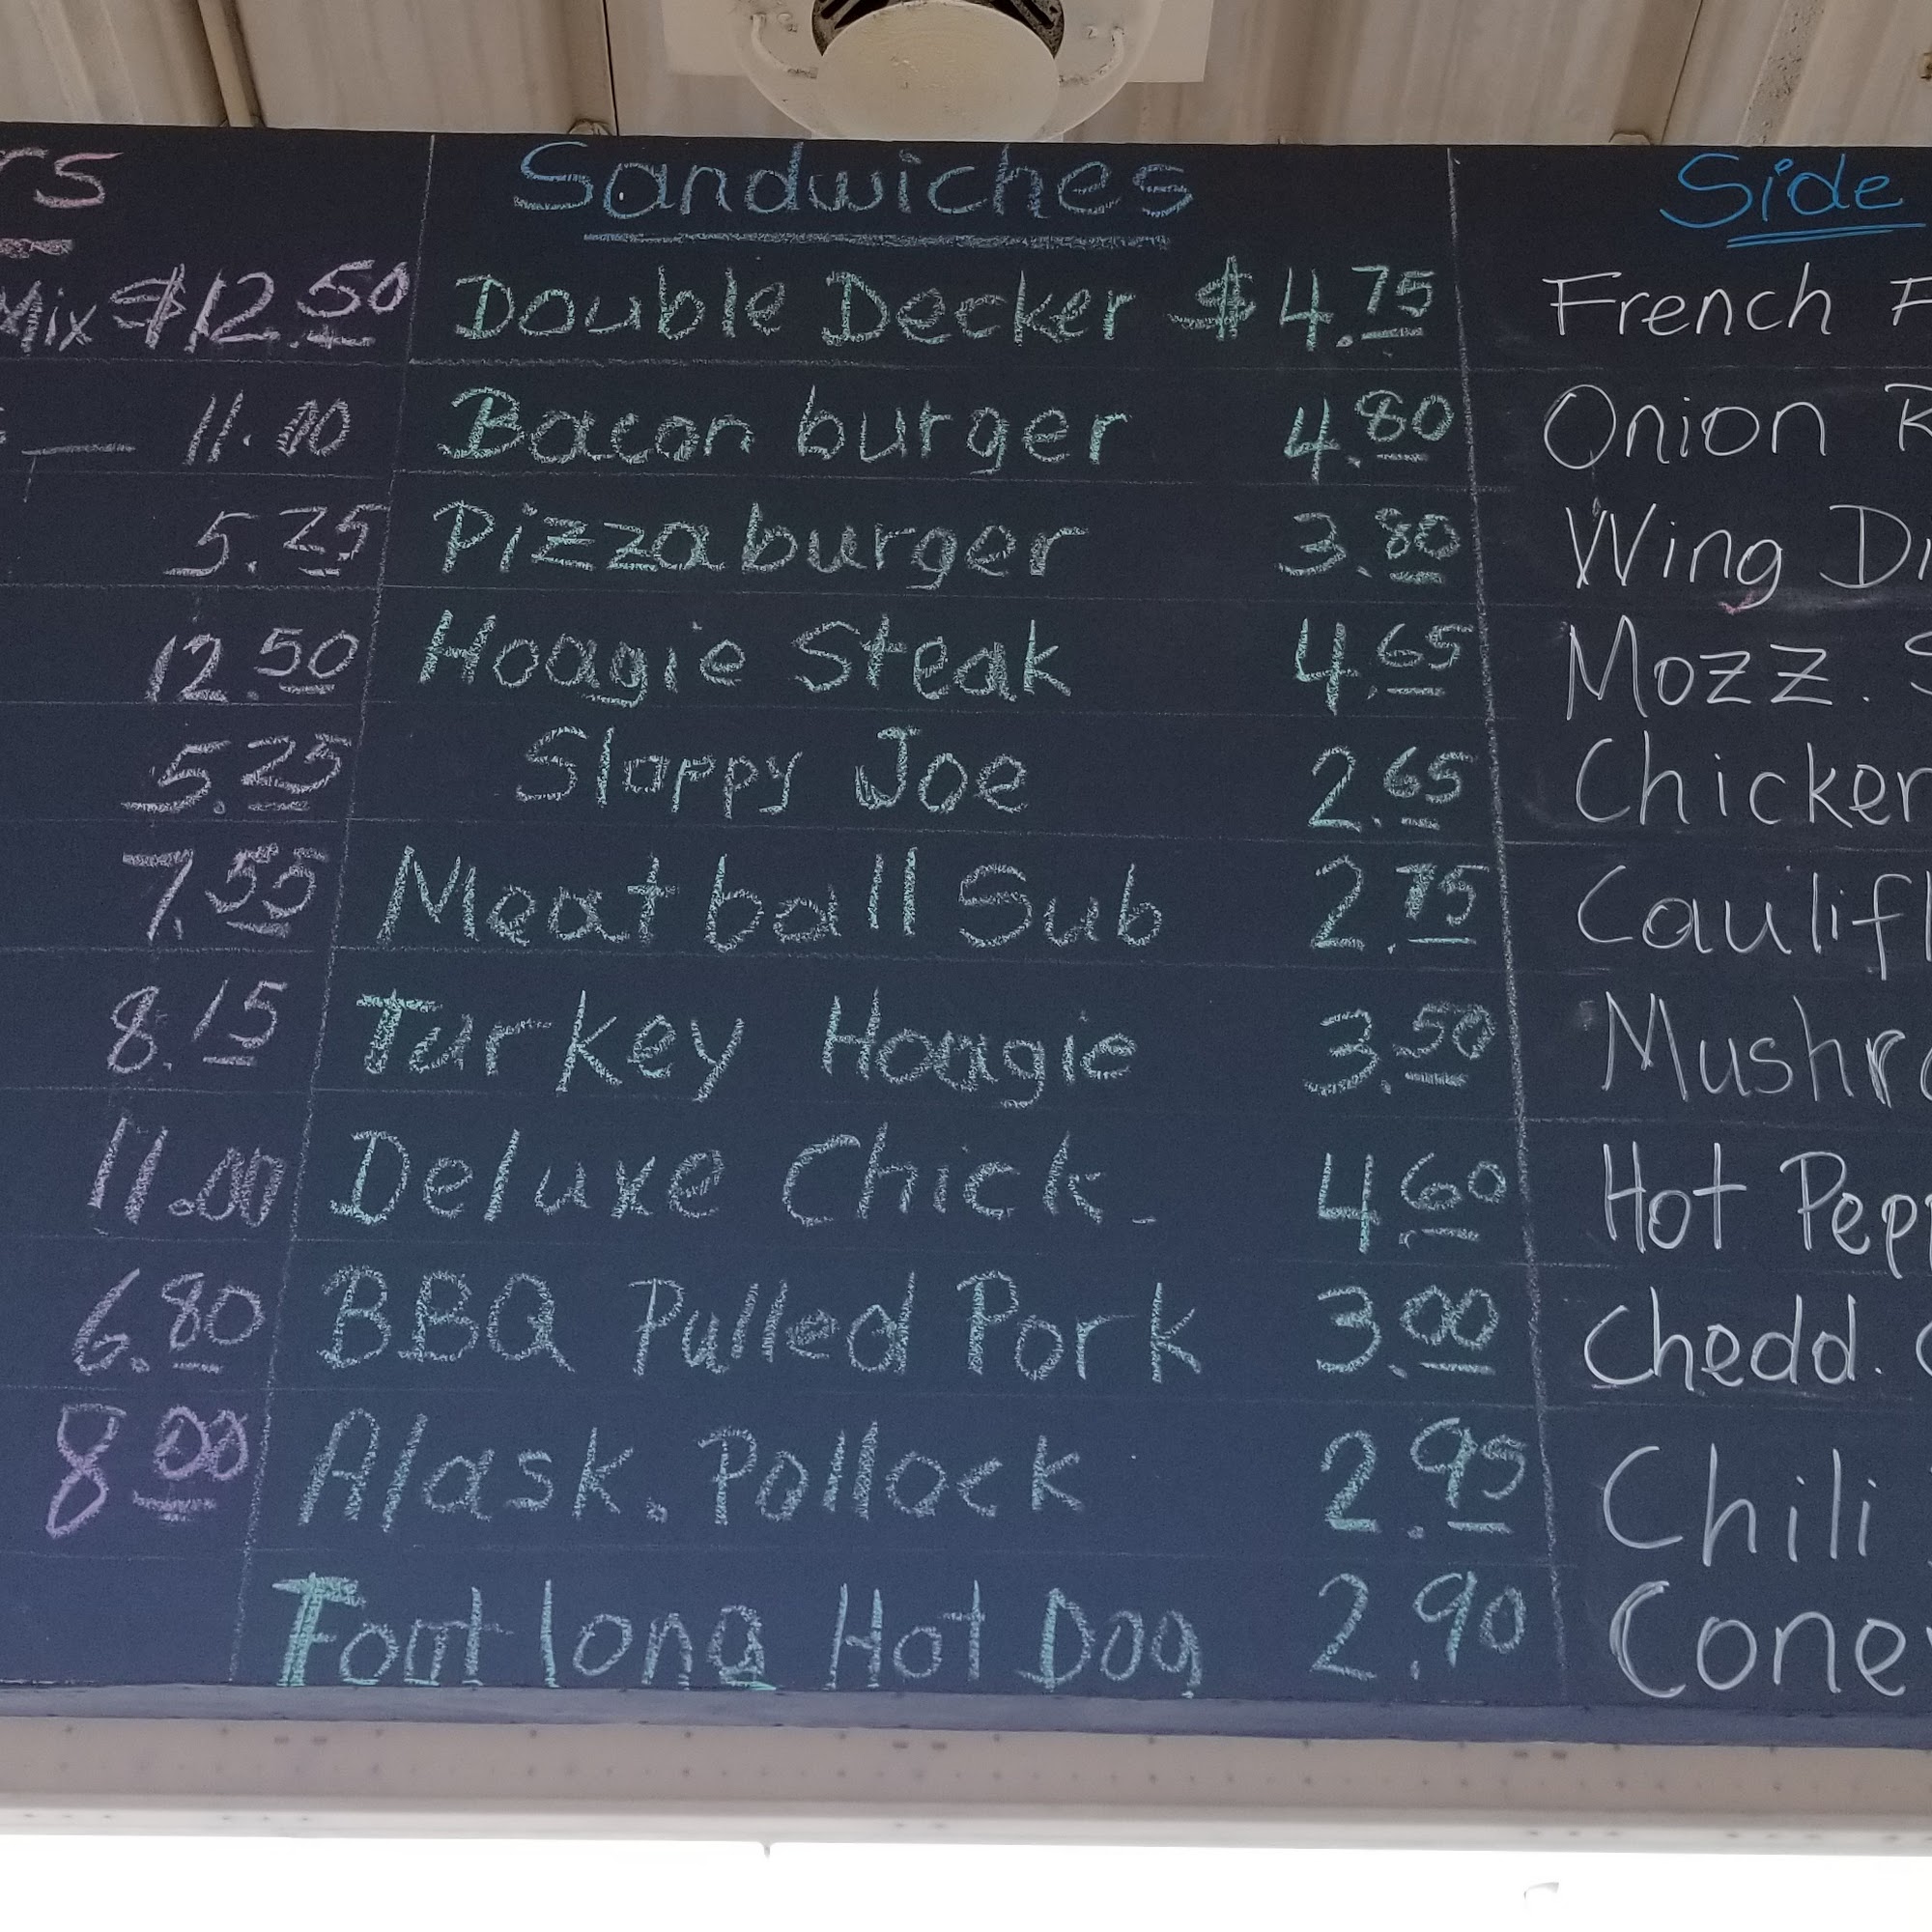 rs
Mix $12.50
11.00
5.25
12.50
5.25
7.55
8.15
11.00
6.80
8.00
Sandwiches
Double Decker $4.75
Bacon burger 4.80
Pizzaburger 3.80
Hoagie Steak 4.65
Sloppy Joe 2.65
Meatball Sub 2.75
Turkey Hoagie 3.50
Deluxe Chick. 4.60
BBQ Pulled Pork 3.00
Alask. Pollock 2.95
Foot long Hot Dog 2.90
Side
French F
Onion R
Wing Di
Mozz. S
Chicken
Caulifl
Mushro
Hot Pepp
Chedd. C
Chili
Coney